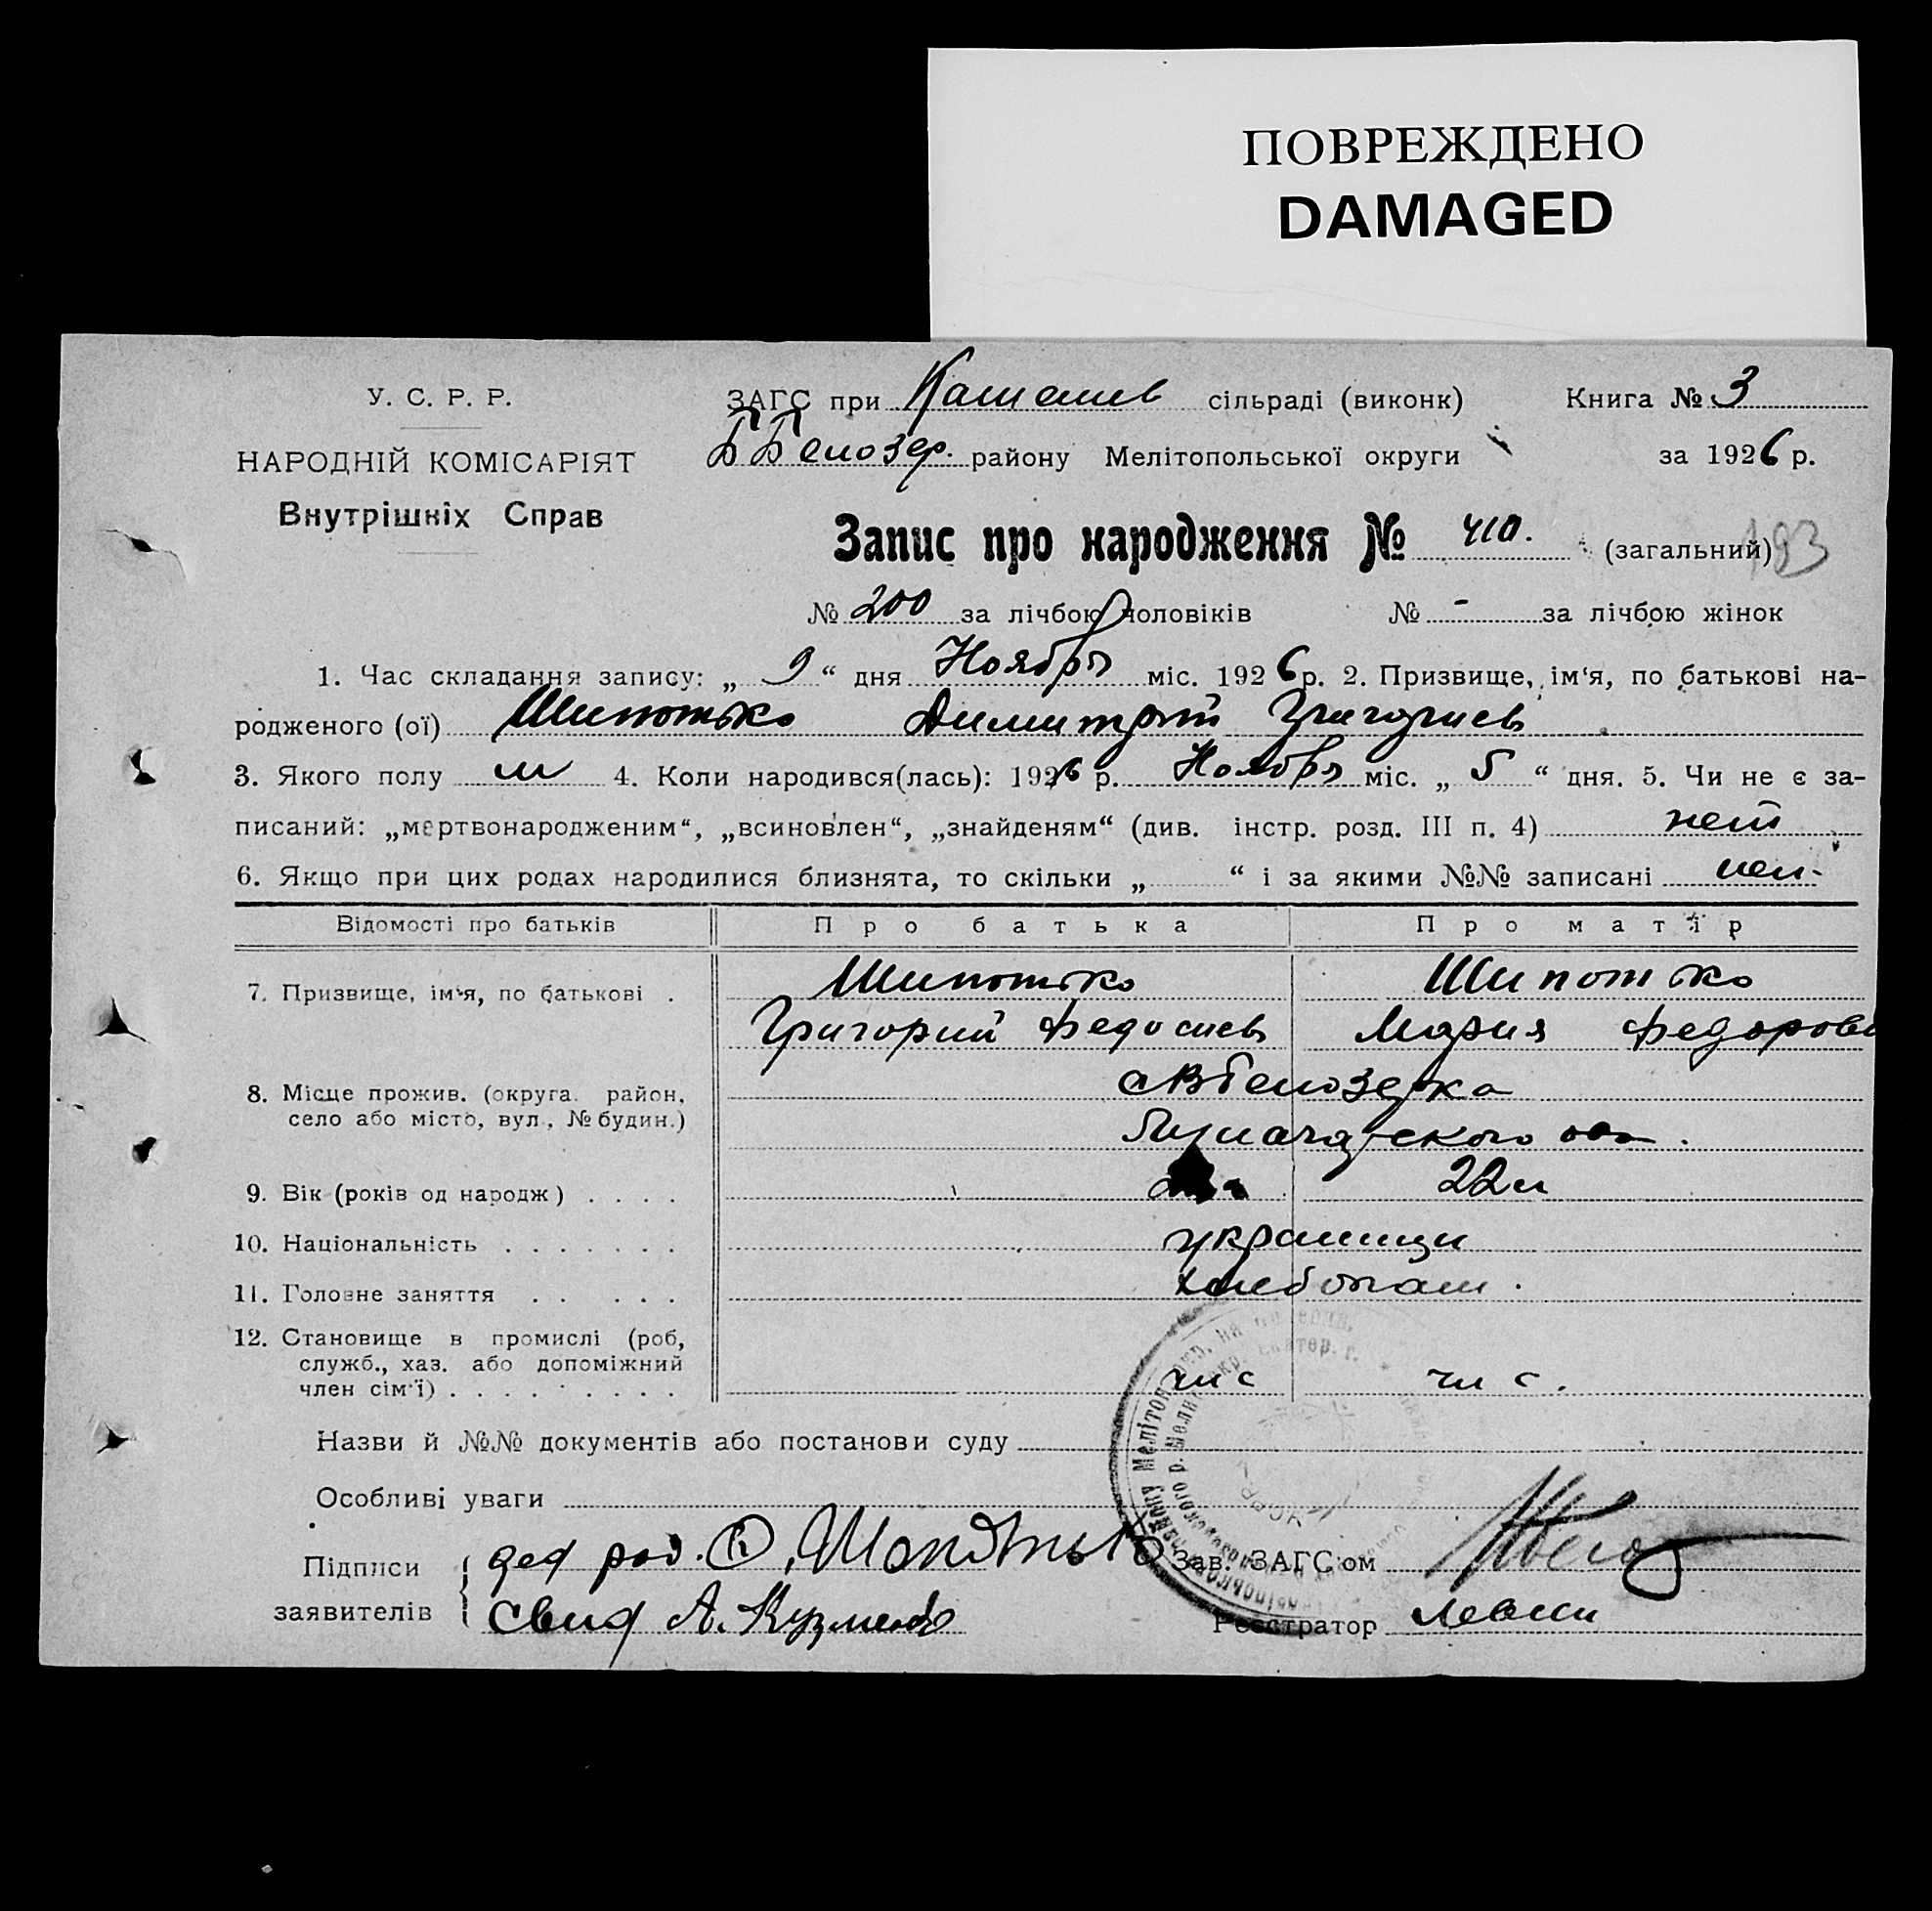 ПОВРЕЖДЕНО
DAMAGED
У. С. Р. Р.
НАРОДНІЙ КОМІСАРІЯТ
Внутрішніх Справ
ЗАГС при сільраді (виконк) Книга № 3
Б Белозер. району Мелітопольської округи за 1926 р.
Запис про народження № 410. (загальний) 193
№ 200 за лічбою чоловіків № - за лічбою жінок
1. Час складання запису: „ 9 “ дня Ноября міс. 1926 р. 2. Призвище, ім‘я, по батькові на-
родженого (ої) Шипотько Димитрий Григориев
3. Якого полу м 4. Коли народився(лась): 1926 р. Ноября міс. „ 5 “ дня. 5. Чи не є за-
писаний: „мертвонародженим“, „всиновлен“, „знайденям“ (див. інстр. розд. III п. 4) нет
6. Якщо при цих родах народилися близнята, то скільки „ “ і за якими №№ записані нет
Відомості про батьків Про батька Про матір
7. Призвище, ім‘я, по батькові . Шипотько Шипотько
Григорий Федосиев Мария Федоров
8. Місце прожив. (округа. район, Белозерка
село або місто, вул., № будин.)
9. Вік (років од народж) . . . . 22
10. Національність . . . . . . . украинцы
11. Головне заняття . . . . . хлебопаш.
12. Становище в промислі (роб,
служб., хаз. або допоміжний
член сім‘ї) . . . . . . . . . чл с чл с.
Назви й №№ документів або постанови суду
Особливі уваги
Підписи дед род. Шопотько Зав. ЗАГС‘ом
заявителів свид А. Кузменко Реєстратор